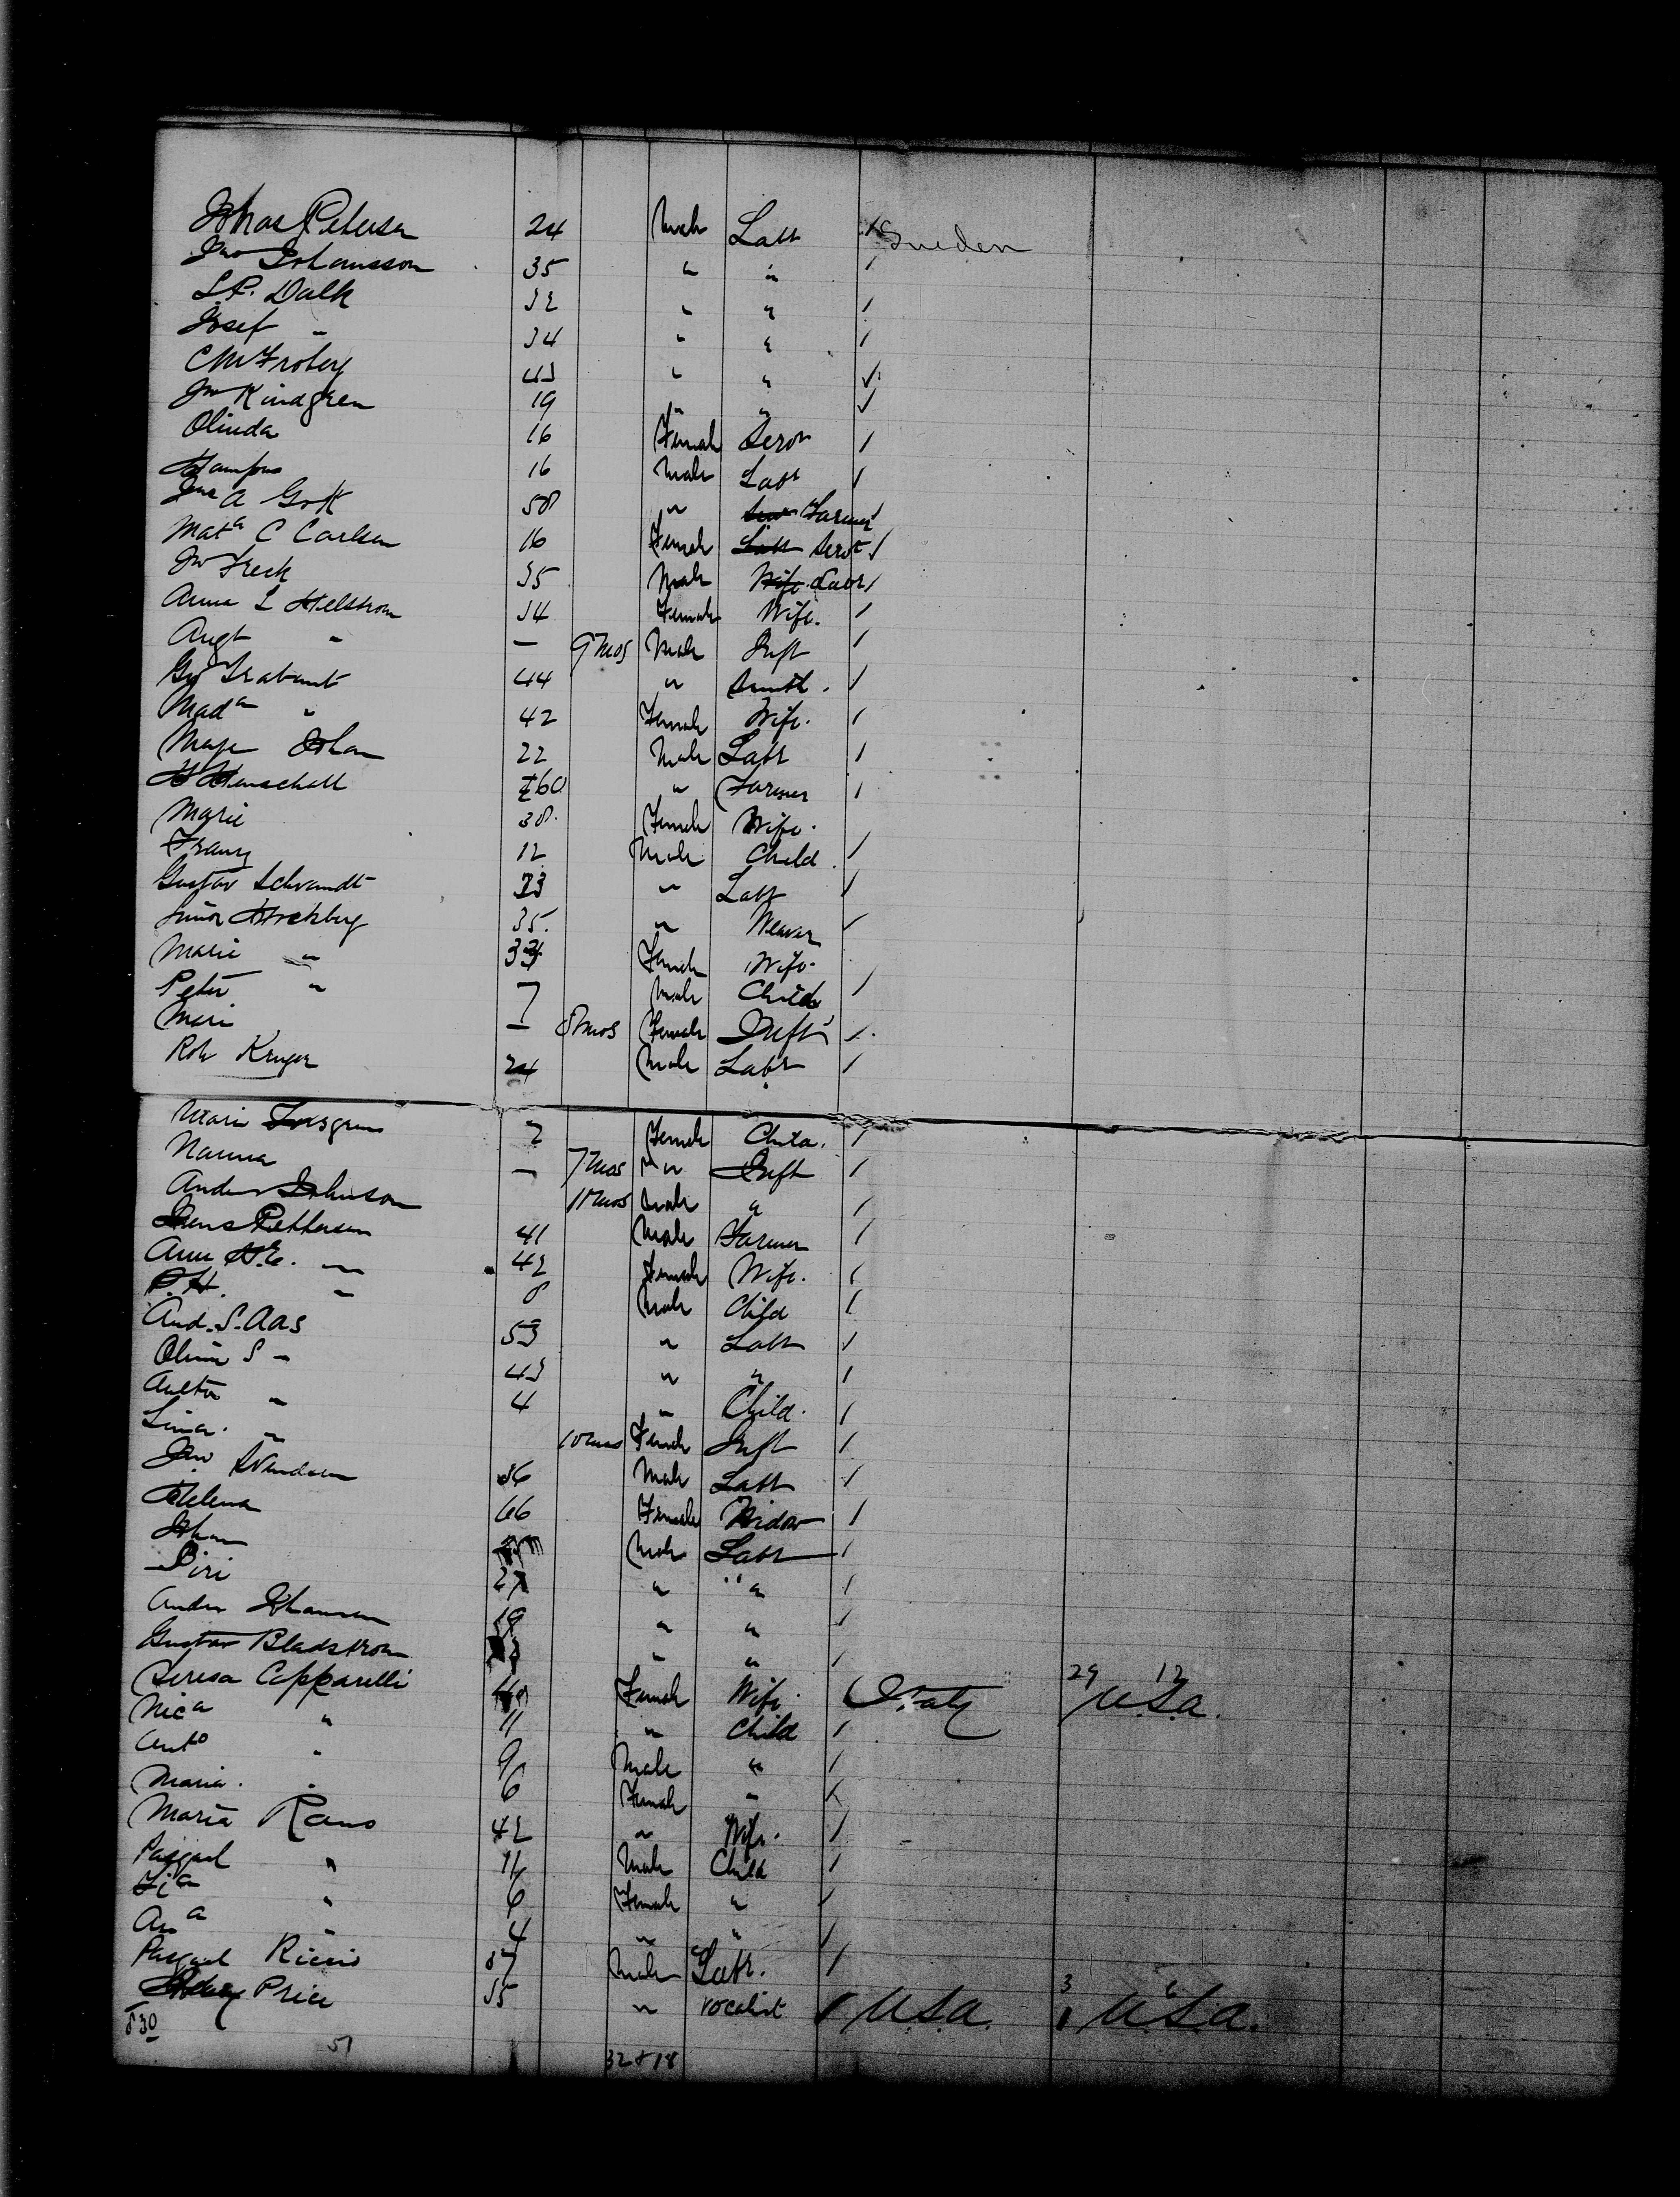 Johas Peterson 24 Male Labr Sweden
Jno Johansson 35 " "
L.P. Dalk 32 " "
Josef " 34 " "
C M Froberg 43 " "
Jno Kindgren 19 " "
Olinda 16 Female Servt
Hampus 16 Male Labr
Jno A Gok 50 " Farmer
Mata C Carlsen 16 Female Labr Servt
Jno Freck 35 Male Wife Labr
Anna L Helstrom 34 Female Wife.
Augt " — 9 mos Male Inft
Trabant 44 " Smith.
Mada " 42 Female Wife.
Johan 22 Male Labr
H Henschell 60 " Farmer
Marie 38. Female Wife.
Franz 12 Male Child.
Gustav Schvandt 23 " Labr
Hirchberg 35. " Weaver
Marie " 33 Female Wife.
Peter " 7 Male Child
Mari — 8 mos Female Inft
Rob Kruger 24 Male Labr
Mari 2 Female Child.
Nanna — 7 mos " Inft
Anders Johnson 11 mos Male "
Jens Pettersen 41 Male Farmer
Ann H.E. " 42 Female Wife.
P.H. " 8 Male Child
And. S. Aas 53 " Labr
S " 43 " "
" 4 " Child.
Lina. " 10 mos Female Inft
Jno Svendsen 36 Male Labr
Helena 66 Female Widow
Johan Male Labr
Siri 27 " "
Anders Johansen 19 " "
Gustav Bladstrom " "
Teresa Capparelli 40 Female Wife. Italy 29 12 U.S.a.
Nica " 11 " Child
Anto " 9 Male "
Maria. " 6 Female "
Maria Rano 42 " Wife.
Pasqual " 11 Male Child
" 6 Female "
Ana " 4 " "
Pasqual Riccio 37 Male Labr.
Price 35 " Vocalist U.S.a. 3 U.S.a.
830
51 32 + 18